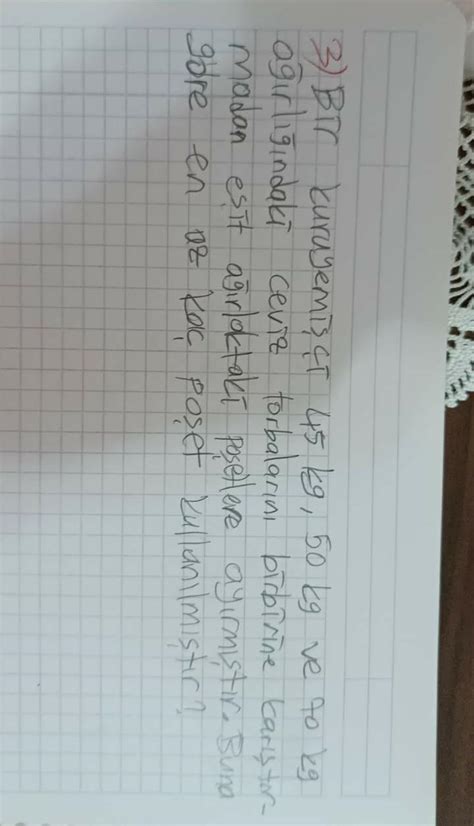 3) Bir kuruyemişçi 45 kg, 50 kg ve 70 kg
ağırlığındaki ceviz torbalarını birbirine karıştır-
madan eşit ağırlıktaki poşetlere ayırmıştır. Buna
göre en az kaç poşet kullanılmıştır?